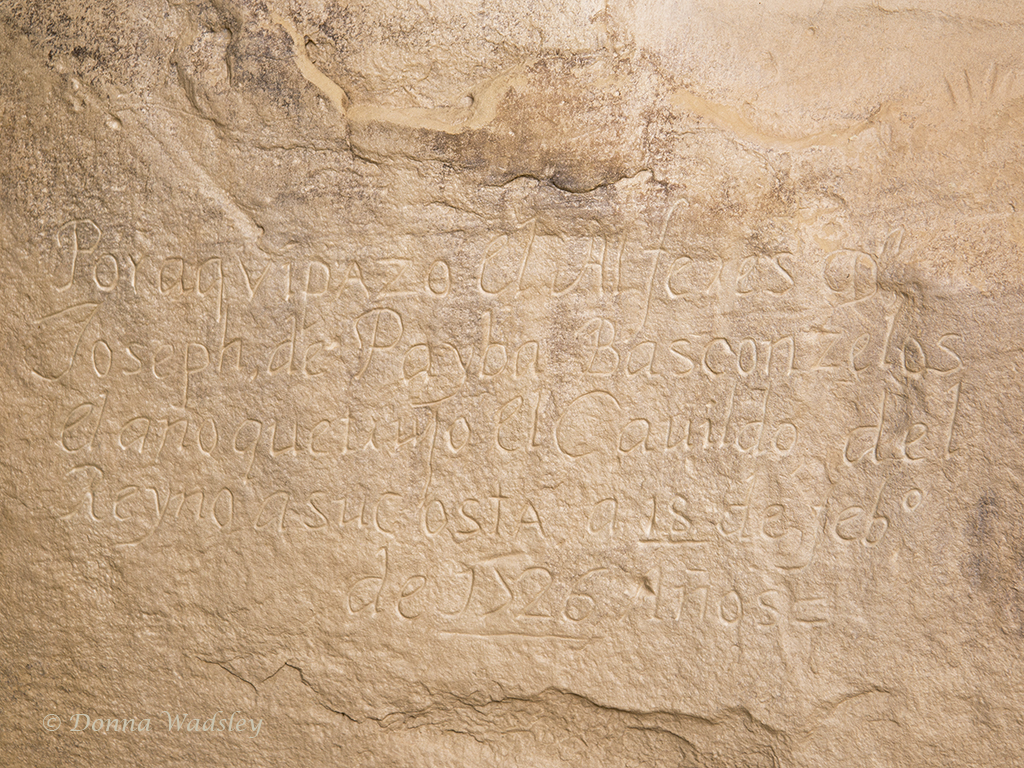 Por aquí pazo el Alferes Dn
Joseph de Payba Basconzelos
el año que tujo el Cauildo del
Reyno a su costa a 18 de feb°
de 1726 Años
© Donna Wadsley